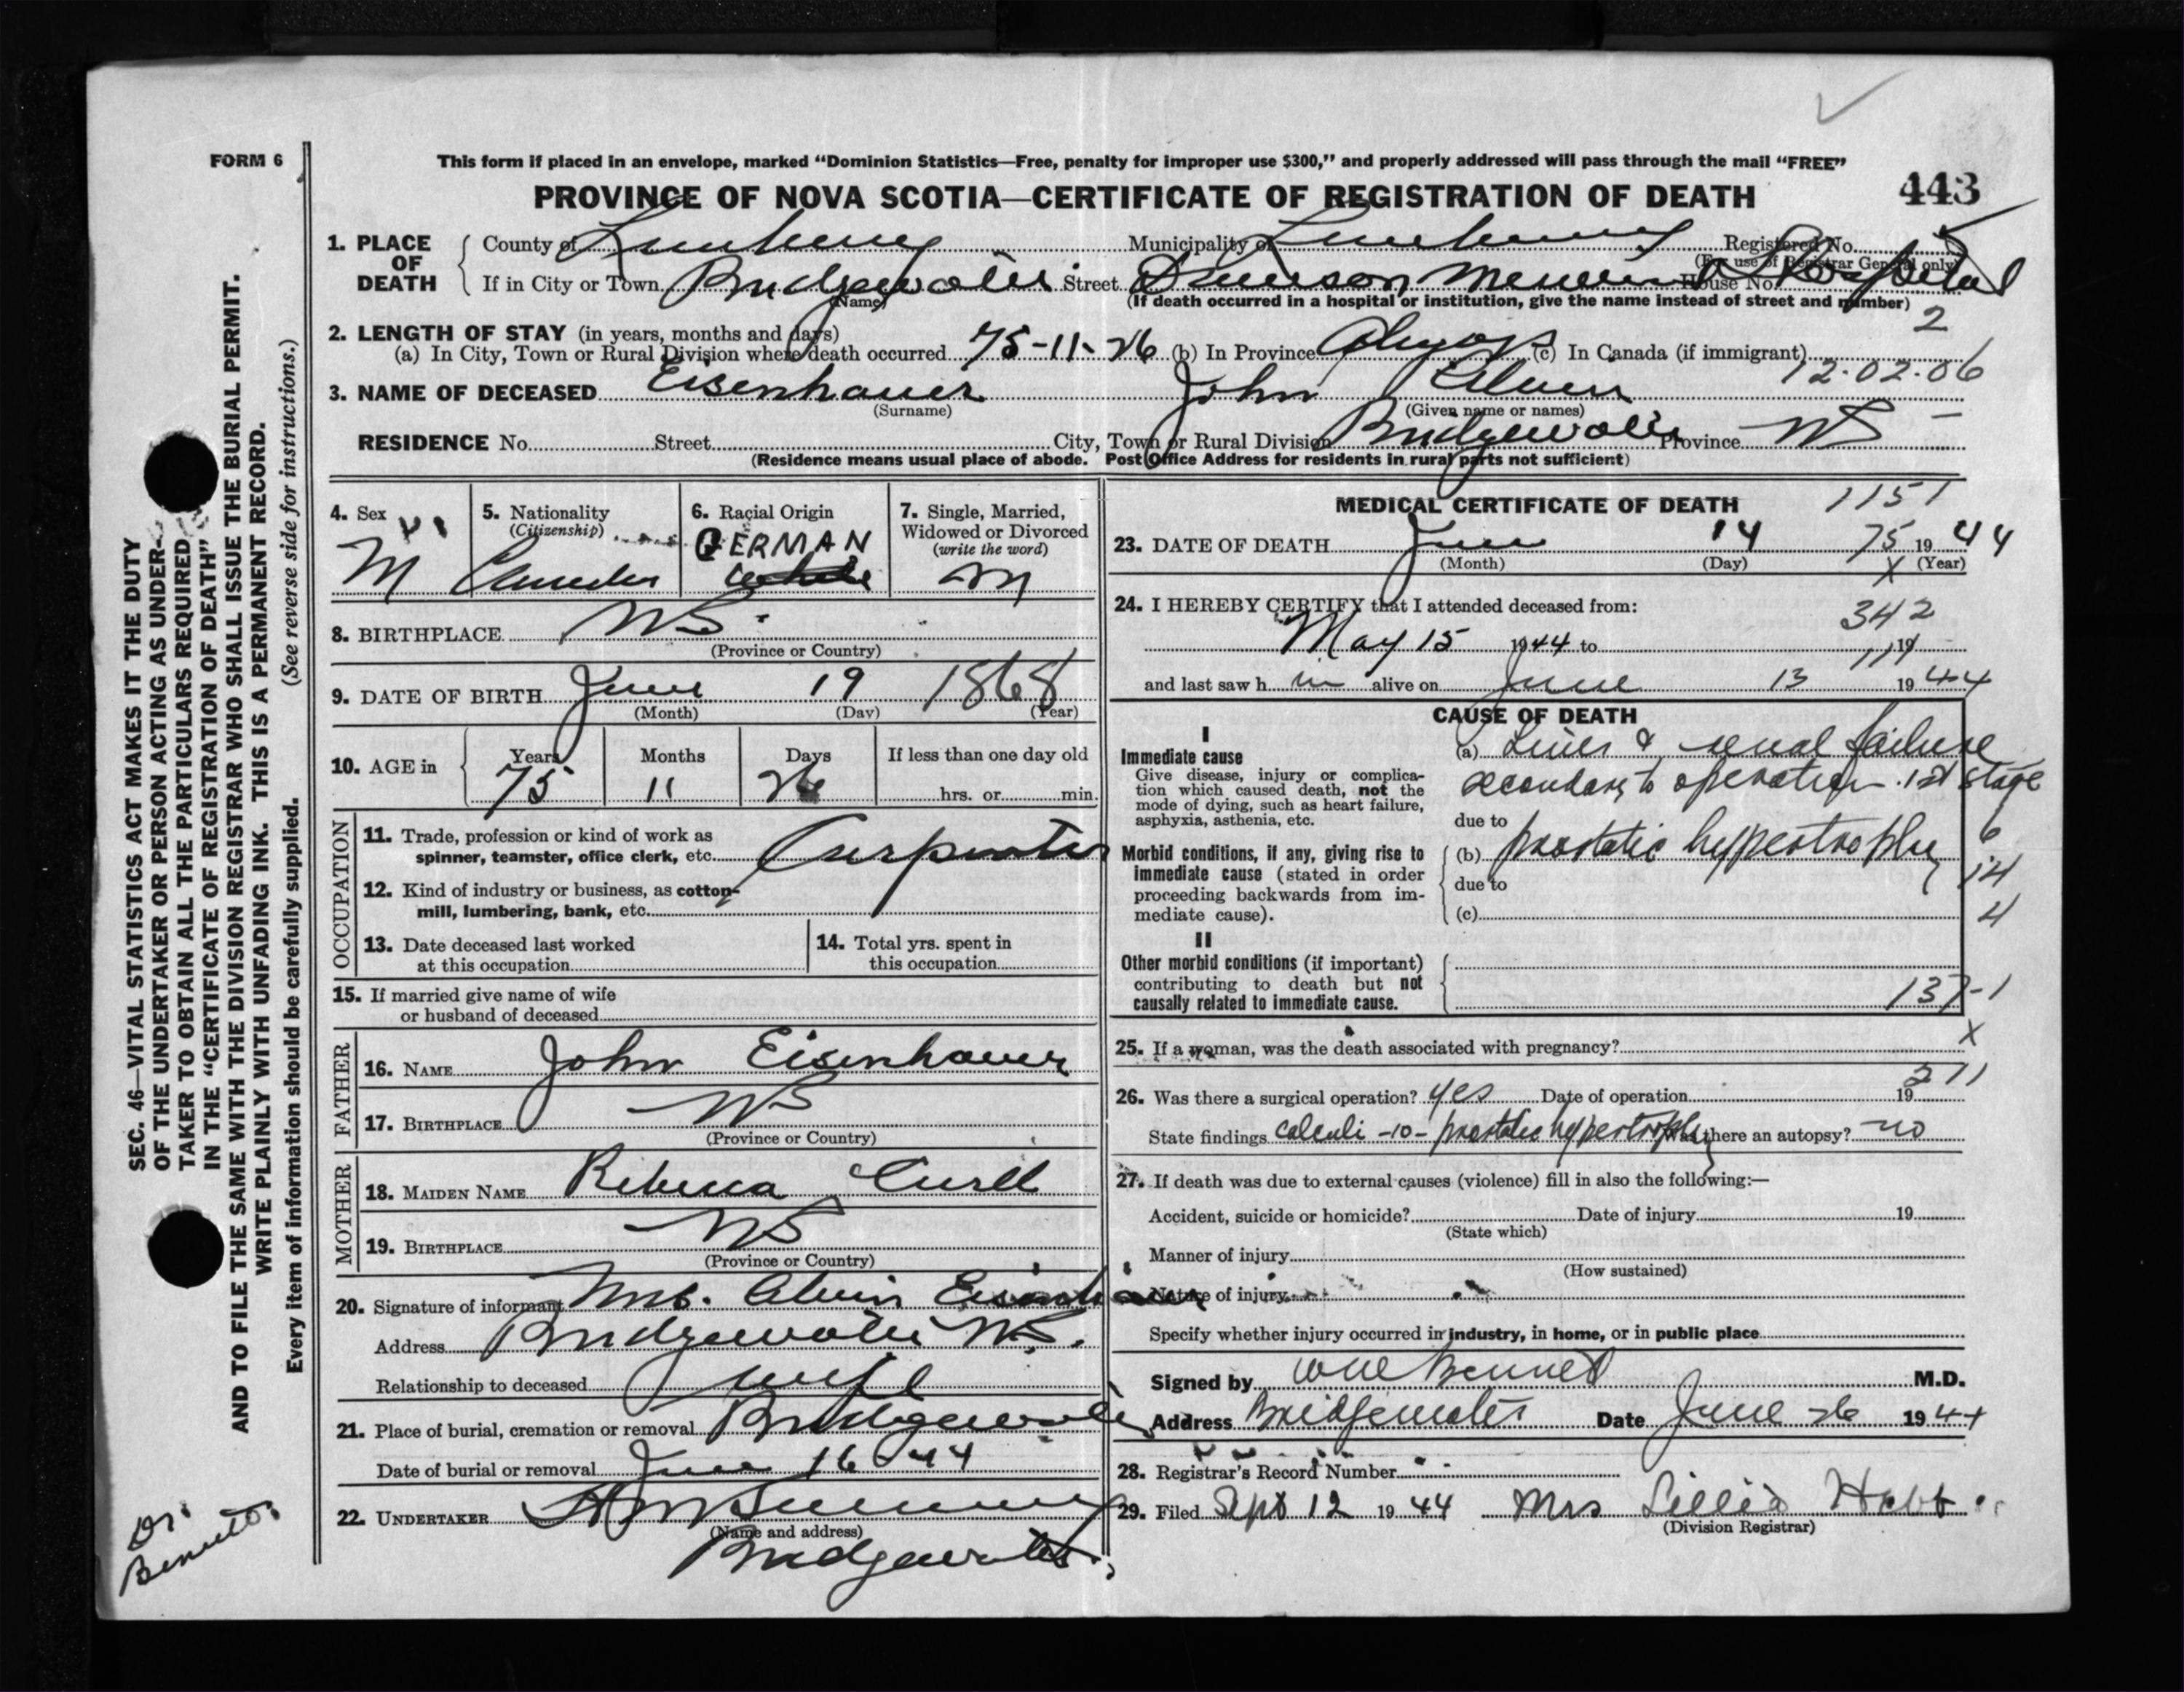 FORM 6
This form if placed in an envelope, marked "Dominion Statistics—Free, penalty for improper use $300," and properly addressed will pass through the mail "FREE"
PROVINCE OF NOVA SCOTIA—CERTIFICATE OF REGISTRATION OF DEATH
443
1. PLACE OF DEATH
County of Lunenburg Municipality of Lunenburg Registered No.
(For use of Registrar General only)
If in City or Town Bridgewater Street Dawson Memorial Hospital House No.
(Name)
(If death occurred in a hospital or institution, give the name instead of street and number)
2
2. LENGTH OF STAY (in years, months and days)
(a) In City, Town or Rural Division where death occurred 75-11-26 (b) In Province Always (c) In Canada (if immigrant)
12-02-06
3. NAME OF DECEASED Eisenhauer John
(Surname) (Given name or names)
RESIDENCE No. Street City, Town or Rural Division Bridgewater Province NS
(Residence means usual place of abode. Post Office Address for residents in rural parts not sufficient)
4. Sex M
5. Nationality (Citizenship)
6. Racial Origin GERMAN white
7. Single, Married, Widowed or Divorced (write the word) M
8. BIRTHPLACE NS
(Province or Country)
9. DATE OF BIRTH June 19 1868
(Month) (Day) (Year)
10. AGE in Years 75 Months 11 Days 26 If less than one day old
hrs. or min.
OCCUPATION
11. Trade, profession or kind of work as
spinner, teamster, office clerk, etc. Carpenter
12. Kind of industry or business, as cotton-
mill, lumbering, bank, etc.
13. Date deceased last worked
at this occupation
14. Total yrs. spent in
this occupation
15. If married give name of wife
or husband of deceased
FATHER
16. NAME John Eisenhauer
17. BIRTHPLACE NS
(Province or Country)
MOTHER
18. MAIDEN NAME Rebecca
19. BIRTHPLACE NS
(Province or Country)
20. Signature of informant Mrs. Alvin Eisenhauer
Address Bridgewater N.S.
Relationship to deceased wife
21. Place of burial, cremation or removal Bridgewater
Date of burial or removal June 16 44
22. UNDERTAKER
(Name and address)
Bridgewater
MEDICAL CERTIFICATE OF DEATH
1151
23. DATE OF DEATH June 14 75 1944
(Month) (Day) X (Year)
24. I HEREBY CERTIFY that I attended deceased from:
342
May 15 1944 to 19
111
and last saw h im alive on June 13 1944
CAUSE OF DEATH
I
Immediate cause
Give disease, injury or complica-
tion which caused death, not the
mode of dying, such as heart failure,
asphyxia, asthenia, etc.
(a) Liver & renal failure
secondary to operation 1st stage
due to
Morbid conditions, if any, giving rise to
immediate cause (stated in order
proceeding backwards from im-
mediate cause).
(b) prostatic hypertrophy
due to
(c)
6
14
4
II
Other morbid conditions (if important)
contributing to death but not
causally related to immediate cause.
137-1
25. If a woman, was the death associated with pregnancy?
X
26. Was there a surgical operation? yes Date of operation 19
State findings calculi -10- prostatic hypertrophy Was there an autopsy? no
27. If death was due to external causes (violence) fill in also the following:—
Accident, suicide or homicide? Date of injury 19
(State which)
Manner of injury
(How sustained)
Nature of injury
Specify whether injury occurred in industry, in home, or in public place
Signed by Bennett M.D.
Address Bridgewater Date June 26 1944
28. Registrar's Record Number
29. Filed Sept 12 1944 Mrs Lillia Hebb
(Division Registrar)
SEC. 46—VITAL STATISTICS ACT MAKES IT THE DUTY
OF THE UNDERTAKER OR PERSON ACTING AS UNDER-
TAKER TO OBTAIN ALL THE PARTICULARS REQUIRED
IN THE "CERTIFICATE OF REGISTRATION OF DEATH"
AND TO FILE THE SAME WITH THE DIVISION REGISTRAR WHO SHALL ISSUE THE BURIAL PERMIT.
WRITE PLAINLY WITH UNFADING INK. THIS IS A PERMANENT RECORD.
Every item of information should be carefully supplied. (See reverse side for instructions.)
Dr.
Bennett